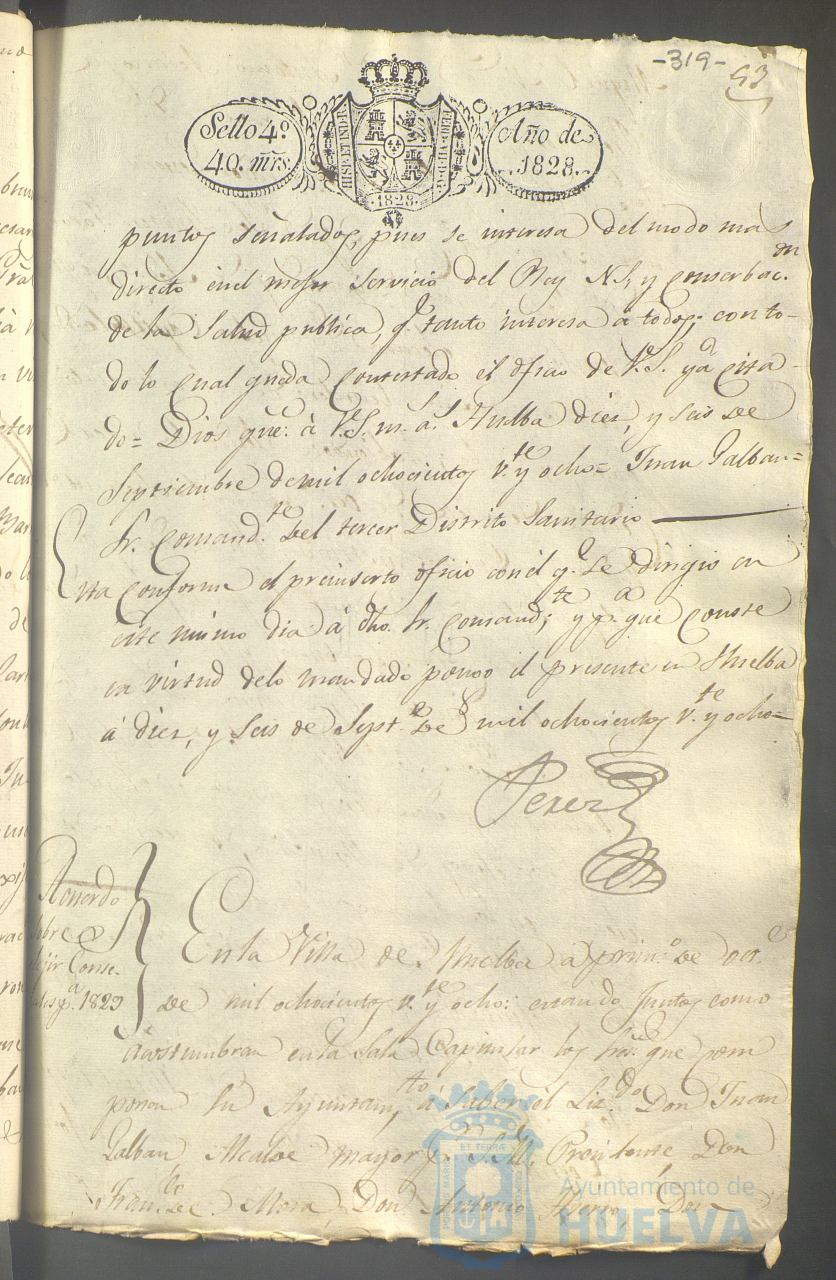 -319-
53
Sello 4º
40. mrs.
HISP. ET IND. R.
FERD. VII. D. G.
1828.
Año de
1828.
puntos señalados, pues se interesa del modo mas
directo en el mejor servicio del Rey N. S. y conserbac.on
de la salud publica, q.e tanto interesa à todos; con to-
do lo cual queda contestado el oficio de V.S. yá cita-
do= Dios gue. à V.S. m.s a.s Huelba diez, y seis de
Septiembre de mil ochocientos v.te y ocho= Juan Galban=
Sr. Comand.te del tercer Distrito Sanitario
Esta conforme el preinserto oficio con el q.e se dirigio en
este mismo dia à dho. Sr. Comand.te, y p.a que conste
en virtud delo mandado pongo el presente en Huelba
à diez, y seis de Sept.e de mil ochocientos v.te y ocho=
Perez
Acuerdo
sobre
elejir Conse-
jales p.a 1829
En la Villa de Huelba a prim.o de oct.e
de mil ochocientos v.te y ocho: estando juntos como
acostumbran en la Sala Capitular los Sres. que com
ponen su Ayuntam.to, à saber el Liz.do Don Juan
Galban Alcalde mayor p.r S.M. Presidente Don
Fran.co de Mora, Don Antonio Hierro, Don
Ayuntamiento de
HUELVA